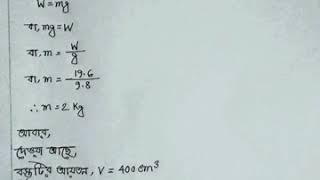 W = mg
বা, mg = W
বা, m = W/g
বা, m = 19.6/9.8
∴ m = 2 Kg
আবার,
দেওয়া আছে,
বস্তুটির আয়তন, V = 400 cm³